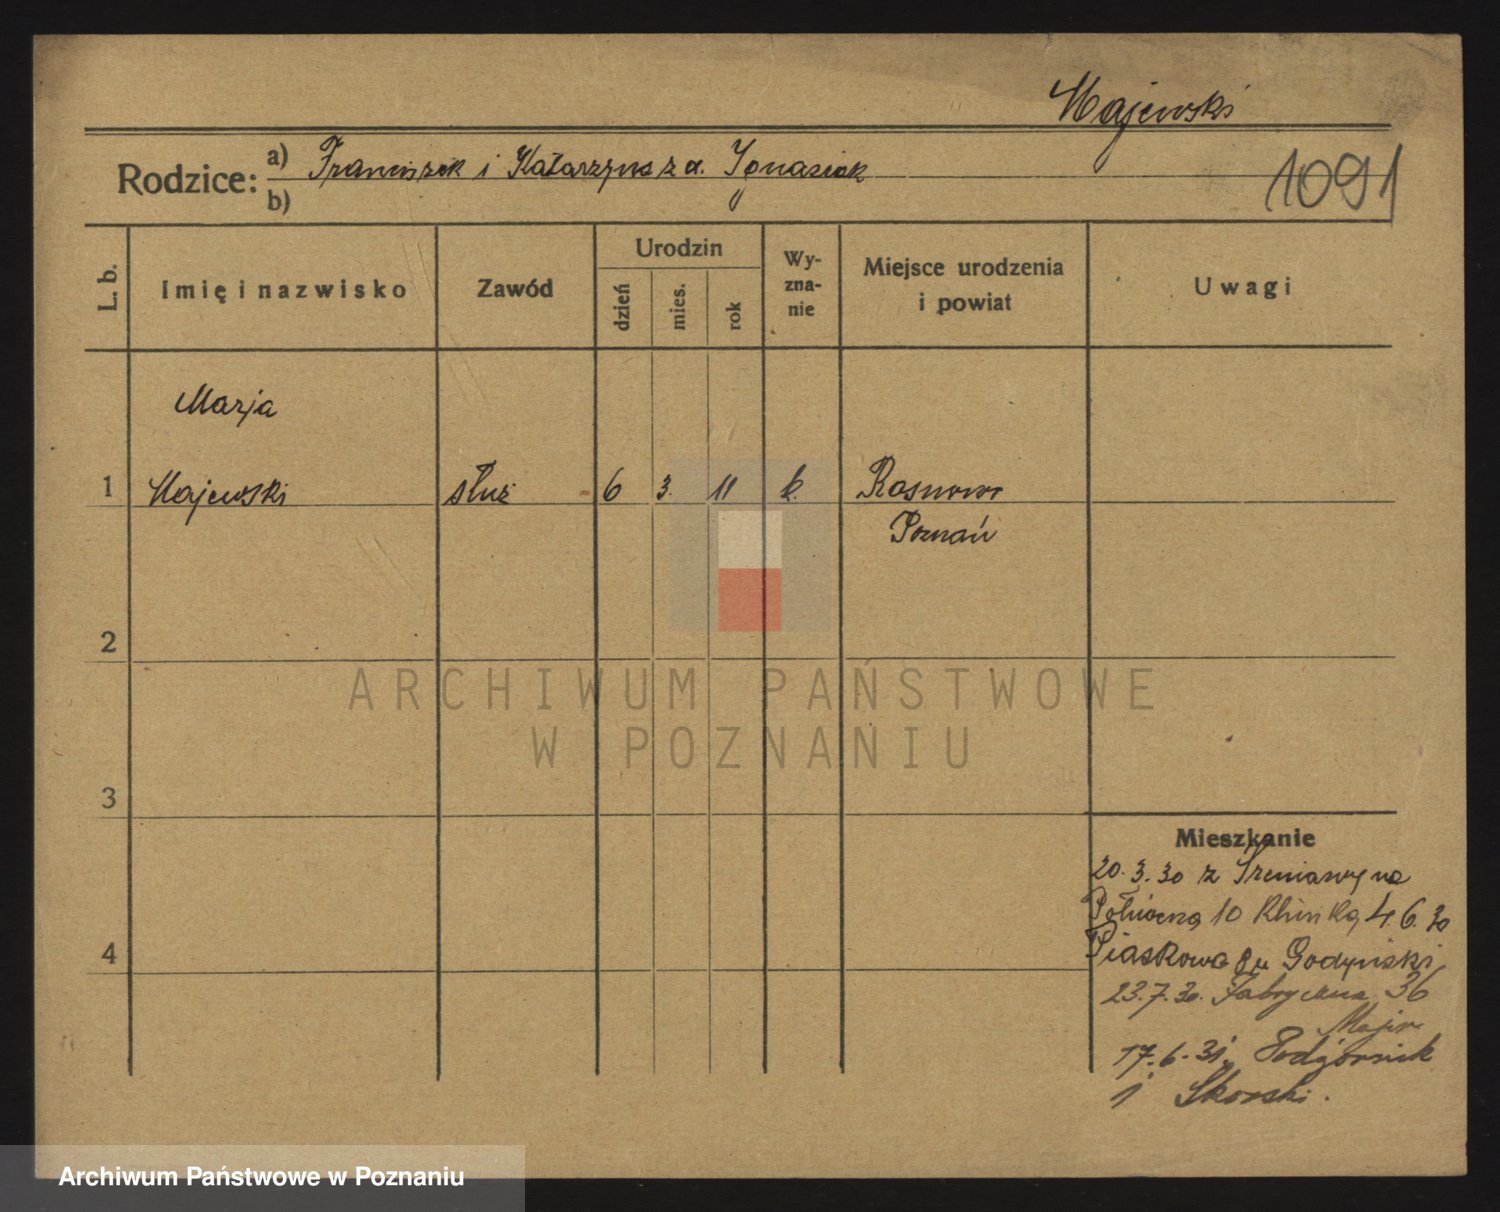 Majewski
Rodzice: a) Franciszek i Katarzyna z d. Ignasiak
b)
1091
L. b.
Imię i nazwisko
Zawód
Urodzin
dzień
mies.
rok
Wy-
zna-
nie
Miejsce urodzenia
i powiat
Uwagi
Marja
1 Majewski służ 6 3. 11 k. Rosnowo
Poznań
2
ARCHIWUM PAŃSTWOWE
W POZNANIU
3
Mieszkanie
20. 3. 30 z Szeniawy na
Północną 10 4. 6. 30
4
Piaskowa 8 u Godyński
23. 7. 30. Fabryczna 36
17. 6. 31.
i Skorski.
Archiwum Państwowe w Poznaniu